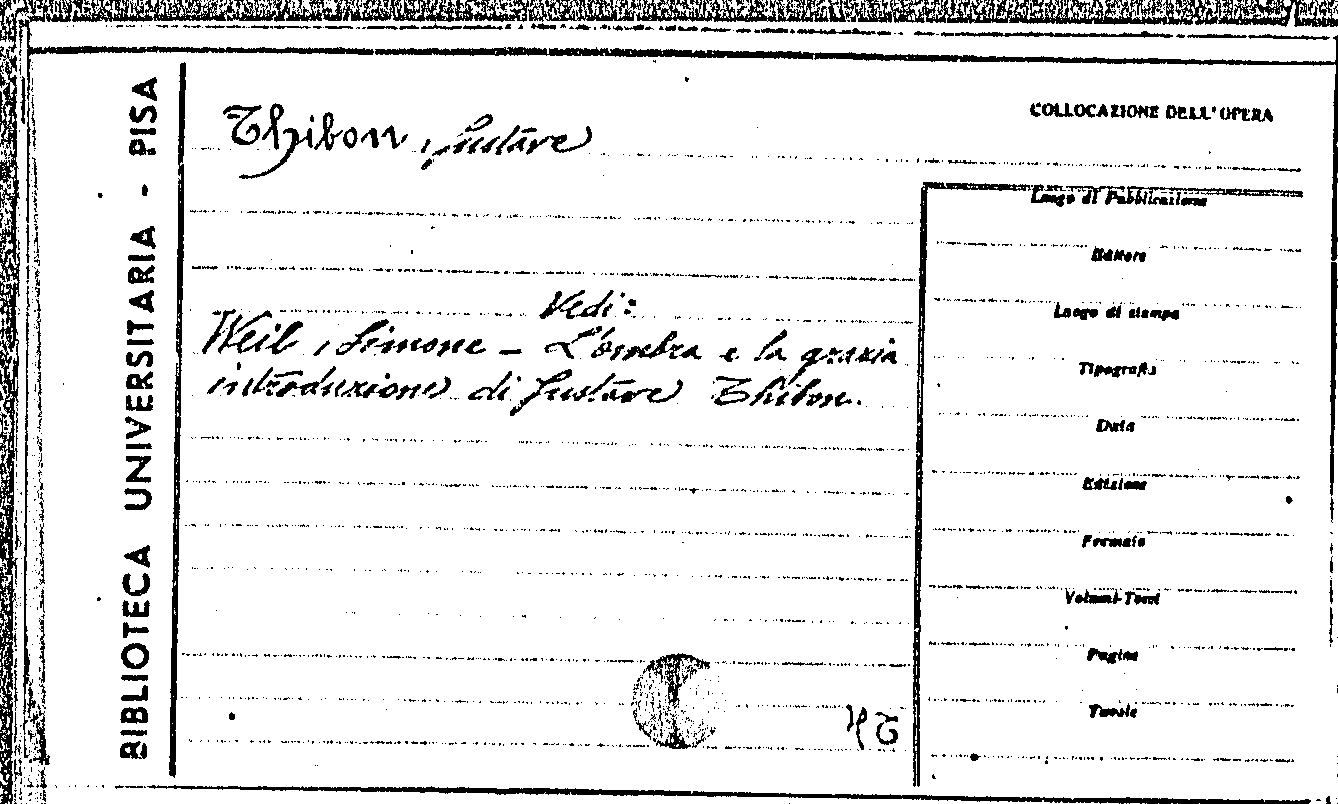 BIBLIOTECA UNIVERSITARIA - PISA
Thibon, Gustave
COLLOCAZIONE DELL'OPERA
Vedi:
Weil, Simone - L'ombra e la grazia
introduzione di Gustave Thibon.
Luogo di Pubblicazione
Editore
Luogo di stampa
Tipografia
Data
Edizione
Formato
Volumi-Tomi
Pagine
Tavole